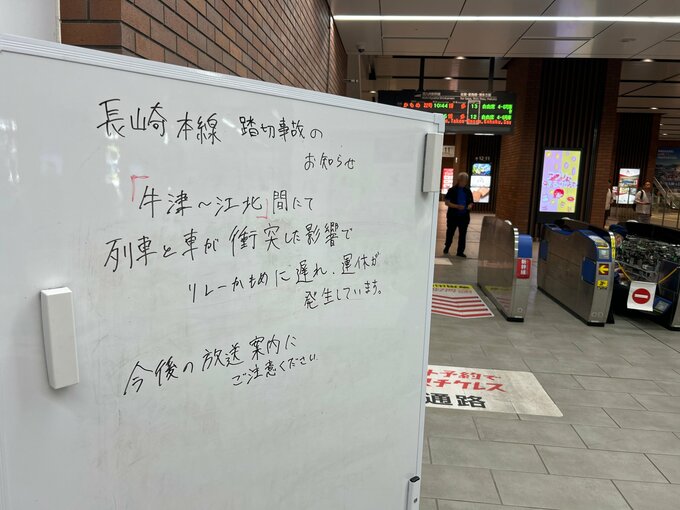 長崎本線 踏切事故の
お知らせ
「牛津～江北」間にて
列車と車が衝突した影響で
リレーかもめに遅れ、運休が
発生しています。
今後の放送案内に
ご注意ください
10:44
13
自由席
12
自由席
新幹線
ト予約で
チケレス
通路